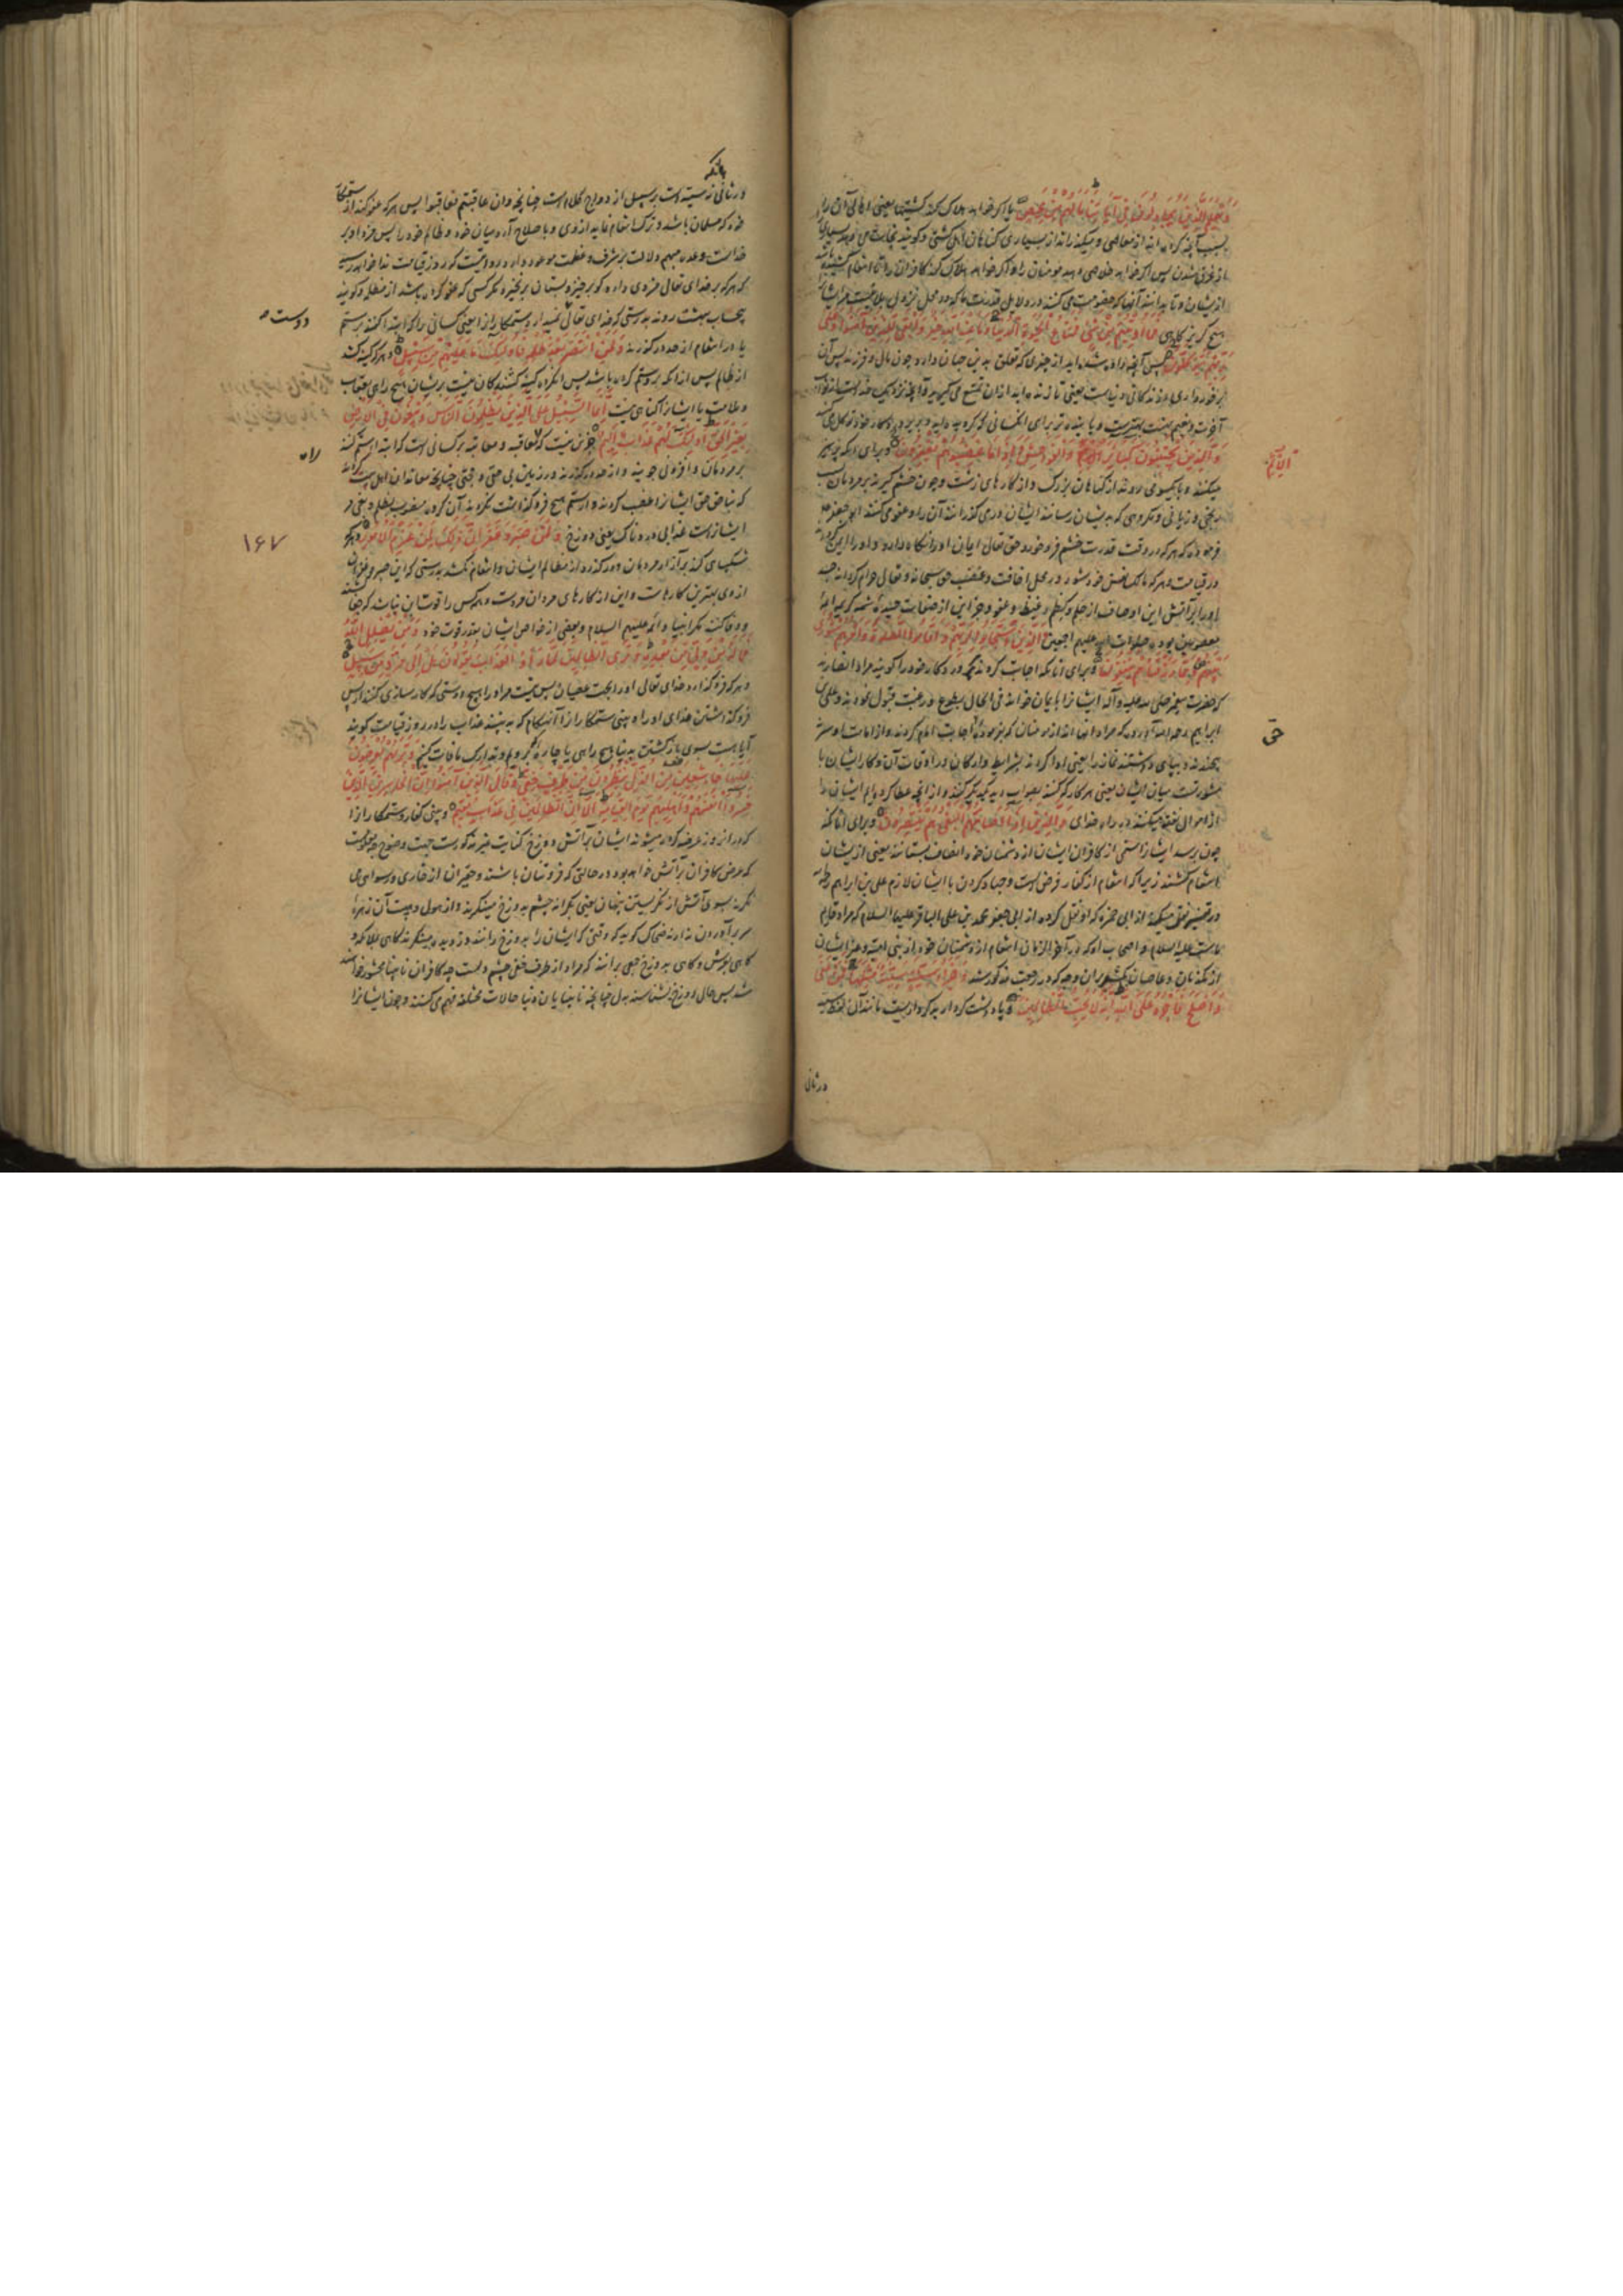 وَيَعْلَمَ الَّذِينَ يُجَادِلُونَ فِي آيَاتِنَا مَا لَهُمْ مِنْ مَحِيصٍ یا اگر خواهد هلاک کند کشتیها یعنی اهالی آن را
بسبب آنچه کرده‌اند از معاصی و میگذراند از بسیاری گناهان اهل کشتی
از غرق شدن پس اگر خواهد خلاصی دهد مومنان را و اگر خواهد هلاک کند کافران را
ازیشان و تا بدانند آنها که خصومت می کنند در دلایل قدرت ما که در محل نزول بلا نیست مر ایشان
هیچ گریزگاهی فَمَا أُوتِيتُمْ مِنْ شَيْءٍ فَمَتَاعُ الْحَيَوةِ الدُّنْيَا وَمَا عِنْدَ اللَّهِ خَيْرٌ وَأَبْقَى لِلَّذِينَ آمَنُوا وَعَلَى
رَبِّهِمْ يَتَوَكَّلُونَ پس آنچه داده شده‌اید از چیزی که تعلق بدین جهان دارد چون مال و فرزند پس آن
برخورداری زندگانی دنیاست یعنی تا زنده‌اید از آن تمتع می گیرید و آنچه نزدیک خداست از ثواب
آخرت و نعیم بهشت بهتر است و پاینده‌تر برای آنکسانی که گرویده‌اند و بر پروردگار خود توکل می کنند
وَالَّذِينَ يَجْتَنِبُونَ كَبَائِرَ الْإِثْمِ وَالْفَوَاحِشَ وَإِذَا مَا غَضِبُوا هُمْ يَغْفِرُونَ و برای آنانکه پرهیز
میکنند و بایکسوی روند از گناهان بزرگ و از کارهای زشت و چون خشم گیرند بر مردمان
برنجی و زیانی و مکروهی که بدیشان رسانند ایشان در می گذرانند آن را و عفو می کنند
فرموده که هر که در وقت قدرت خشم فرو خورد حق تعالی ایمان او را نگاه دارد و او را ایمن گرداند
در قیامت و هر که مالک نفس خود شود در محل
او را بر آتش این اوصاف از حلم و کظم غیظ و عفو و جز این از صفات
معصومین بوده صلوات الله علیهم اجمعین وَالَّذِينَ اسْتَجَابُوا لِرَبِّهِمْ وَأَقَامُوا الصَّلَوةَ وَأَمْرُهُمْ شُورَى
بَيْنَهُمْ وَمِمَّا رَزَقْنَاهُمْ يُنْفِقُونَ و برای آنانکه اجابت کردند پروردگار خود را گویند مراد انصارند
که حضرت پیغمبر صلی الله علیه و آله ایشان را بایمان خواند فی الحال بطوع و رغبت قبول نمودند و علی بن
ابراهیم رحمه الله آورده که مراد آنها اند از مومنان که بفرموده اجابت امام کردند
و بپای داشتند نماز را یعنی ادا کردند بشرایط و ارکان در اوقات آن و کار ایشان با
مشورتست میان ایشان یعنی هر کار که کنند بصواب دید یکدیگر کنند و از آنچه عطا کرده‌ایم ایشان را
از اموال نفقه میکنند در راه خدای وَالَّذِينَ إِذَا أَصَابَهُمُ الْبَغْيُ هُمْ يَنْتَصِرُونَ و برای آنانکه
چون برسد ایشان را ستمی از کافران ایشان از دشمنان خود انصاف بستانند یعنی ازیشان
انتقام کشند زیرا که انتقام از کفار فرض است و جهاد کردن با ایشان لازم علی بن ابراهیم رحمه الله
در تفسیر نقل میکند از ابی حمزه که او نقل کرده از ابی جعفر محمد بن علی الباقر علیهما السلام که مراد قایم
ماست علیه السلام و اصحاب او که در آخر الزمان انتقام از دشمنان خود از بنی امیه و غیر ایشان
از مکذبان و عاصیان بکشد بر آن وجه که در رجعت مذکور شد وَجَزَاءُ سَيِّئَةٍ سَيِّئَةٌ مِثْلُهَا فَمَنْ عَفَى
وَأَصْلَحَ فَأَجْرُهُ عَلَى اللَّهِ إِنَّهُ لَا يُحِبُّ الظَّالِمِينَ و پاداشت کردار بد کردار بدیست مانند آن
در ثانی
الاثم
حق
در ثانی نه سیئه است بر سبیل ازدواج کلام است چنانچه و ان عاقبتم فعاقبوا پس هر که عفو کند از ستمکار
خود که مسلمان باشد و ترک انتقام نماید از وی و باصلاح آرد میان خود و ظالم خود را پس مزد او بر
خداست وعده مبهم دلالت بر شرف و عظمت موعود دارد در روایتست که روز قیامت ندا خواهد رسید
که هر که بر خدای تعالی مزدی دارد گو برخیز و بستان برنخیزد مگر کسی که عفو کرده باشد از مظلمه و گویند
بیحساب ببهشت روند بدرستی که خدای تعالی نمیدارد ستمکاران را یعنی کسانی را که ابتدا کنند بر ستم
یا در انتقام از حد در گذرند وَلَمَنِ انْتَصَرَ بَعْدَ ظُلْمِهِ فَأُولَئِكَ مَا عَلَيْهِمْ مِنْ سَبِيلٍ و هر که کینه کشد
از ظالم پس از آنکه بر و ستم کرده باشد پس آنگروه کینه کشندگان نیست بریشان هیچ راهی بعتاب
و ملامت یا ایشان را گناهی نیست إِنَّمَا السَّبِيلُ عَلَى الَّذِينَ يَظْلِمُونَ النَّاسَ وَيَبْغُونَ فِي الْأَرْضِ
بِغَيْرِ الْحَقِّ أُولَئِكَ لَهُمْ عَذَابٌ أَلِيمٌ جز این نیست که معاقبه و معاتبه بر کسانی است که ابتدا ستم کنند
بر مردمان و افزونی جویند و از حد در گذرند در زمین بی حقی و حجتی
که بناحق حق ایشان را غصب کردند و از ستم هیچ فرو نگذاشتند
ایشان راست عذابی دردناک یعنی دوزخ وَلَمَنْ صَبَرَ وَغَفَرَ إِنَّ ذَلِكَ لَمِنْ عَزْمِ الْأُمُورِ و هر که
شکیبای کند بر آزار مردمان و در گذرد از مظالم ایشان و انتقام نکشد بدرستی که این صبر و غفران
از وی بهترین کارهاست و این از کارهای مردان مردست و هر کس را قوت این نباشد که جفا
و وفا کند مگر انبیا و ائمه علیهم السلام و بعضی از خواص ایشان بقدر قوت خود وَمَنْ يُضْلِلِ اللَّهُ
فَمَا لَهُ مِنْ وَلِيٍّ مِنْ بَعْدِهِ وَتَرَى الظَّالِمِينَ لَمَّا رَأَوُا الْعَذَابَ يَقُولُونَ هَلْ إِلَى مَرَدٍّ مِنْ سَبِيلٍ
و هر که فرو گذارد خدای تعالی او را بجهت عصیان پس نیست مر او را هیچ دوستی که کارسازی کند از پس
فرو گذاشتن خدای او را و بینی ستمکاران را آنهنگام که به بینند عذاب را در روز قیامت گویند
آیا هست بسوی بازگشتن بدنیا هیچ راهی یا چاره که برویم و تدارک مافات کنیم وَتَرَاهُمْ يُعْرَضُونَ
عَلَيْهَا خَاشِعِينَ مِنَ الذُّلِّ يَنْظُرُونَ مِنْ طَرْفٍ خَفِيٍّ وَقَالَ الَّذِينَ آمَنُوا إِنَّ الْخَاسِرِينَ الَّذِينَ
خَسِرُوا أَنْفُسَهُمْ وَأَهْلِيهِمْ يَوْمَ الْقِيَمَةِ أَلَا إِنَّ الظَّالِمِينَ فِي عَذَابٍ مُقِيمٍ و بینی کفار و ستمکاران را
که در آنروز عرضه کرده میشوند ایشان بر آتش دوزخ
که عرض کافران بر آتش خواهد بود در حالتی که فروتنان باشند و حقیران از خواری و رسوای می
نگرند بسوی آتش از نگریستن پنهان یعنی بگرانه چشم بدوزخ مینگرند و از هول و هیبت آن زهره
سر برآوردن ندارند ضحاک گوید که وقتی که ایشان را بدوزخ رانند دزدیده مینگرند گاهی بملائکه و
گاهی بعرش و گاهی بدوزخ جمعی برانند که مراد از طرف خفی چشم دلست چه کافران نابینا محشور خواهند
شد پس حال دوزخ بشناسند بدل چنانچه نابینایان دنیا حالات مختلفه فهم می کنند و چون ایشان را
دوست
راه
۱۶۷